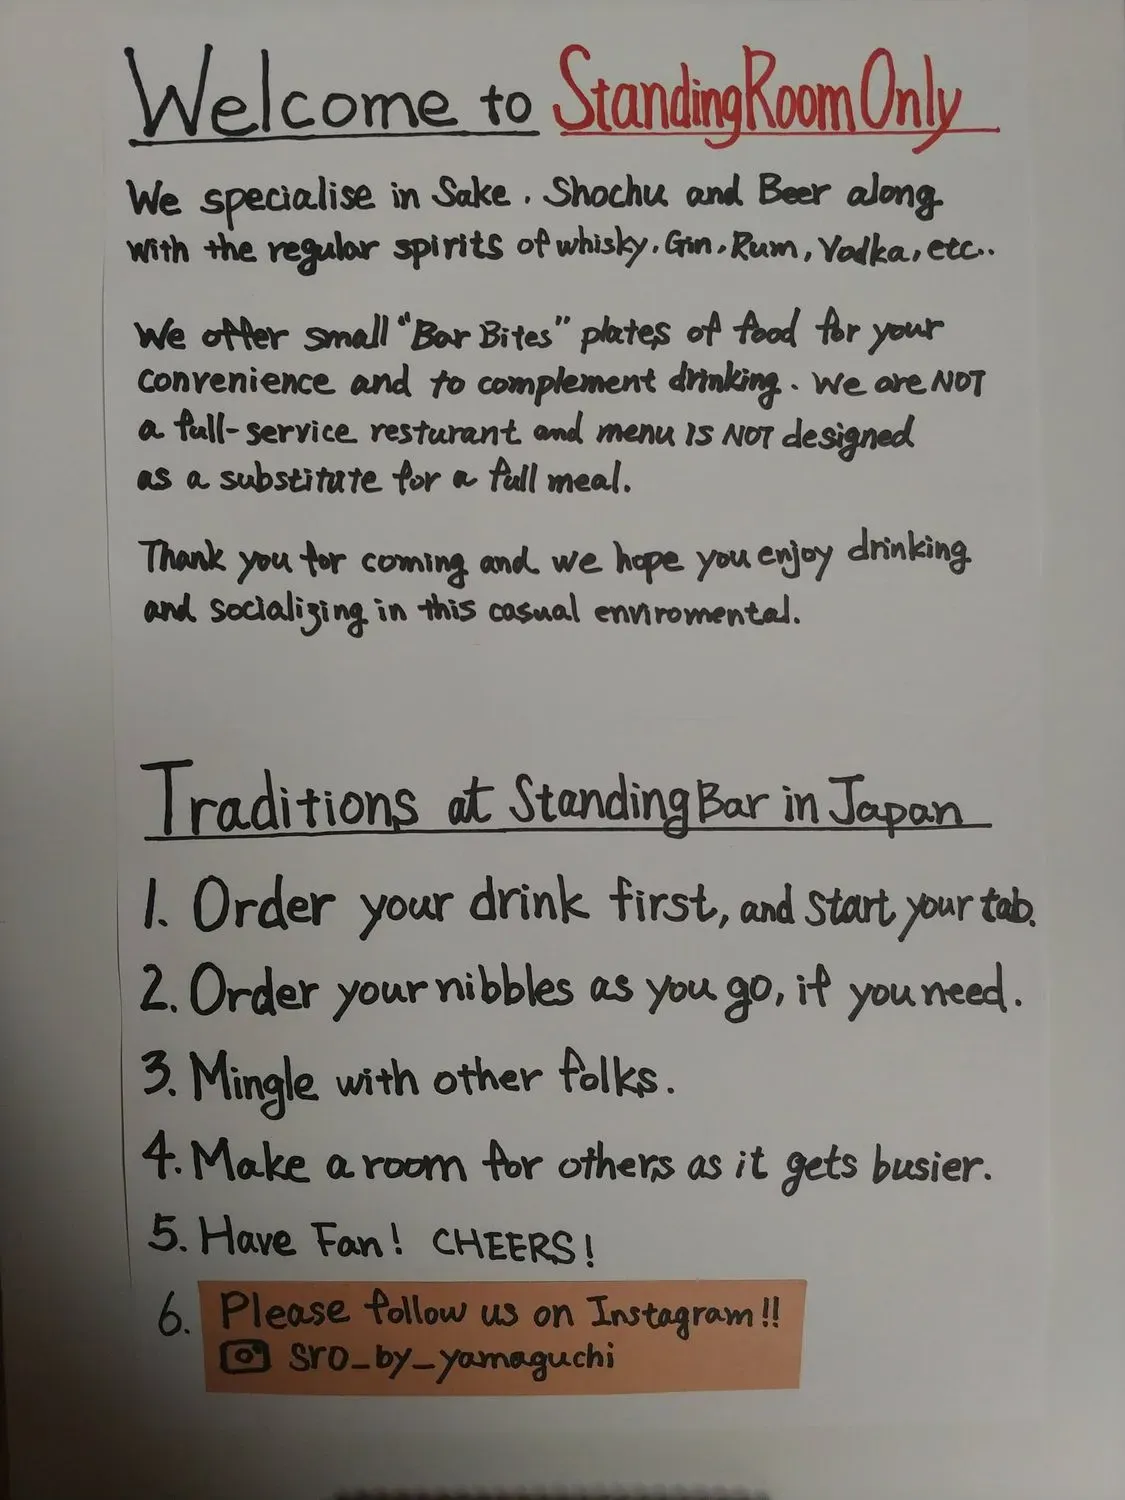 Welcome to StandingRoomOnly
We specialise in Sake, Shochu and Beer along
with the regular spirits of whisky, Gin, Rum, Vodka, etc..
We offer small "Bar Bites" plates of food for your
convenience and to complement drinking. We are NOT
a full-service resturant and menu IS NOT designed
as a substitute for a full meal.
Thank you for coming and we hope you enjoy drinking
and socializing in this casual enviromental.
Traditions at Standing Bar in Japan
1. Order your drink first, and start your tab.
2. Order your nibbles as you go, if you need.
3. Mingle with other folks.
4. Make a room for others as it gets busier.
5. Have Fan! CHEERS!
6. Please follow us on Instagram!!
sro_by_yamaguchi